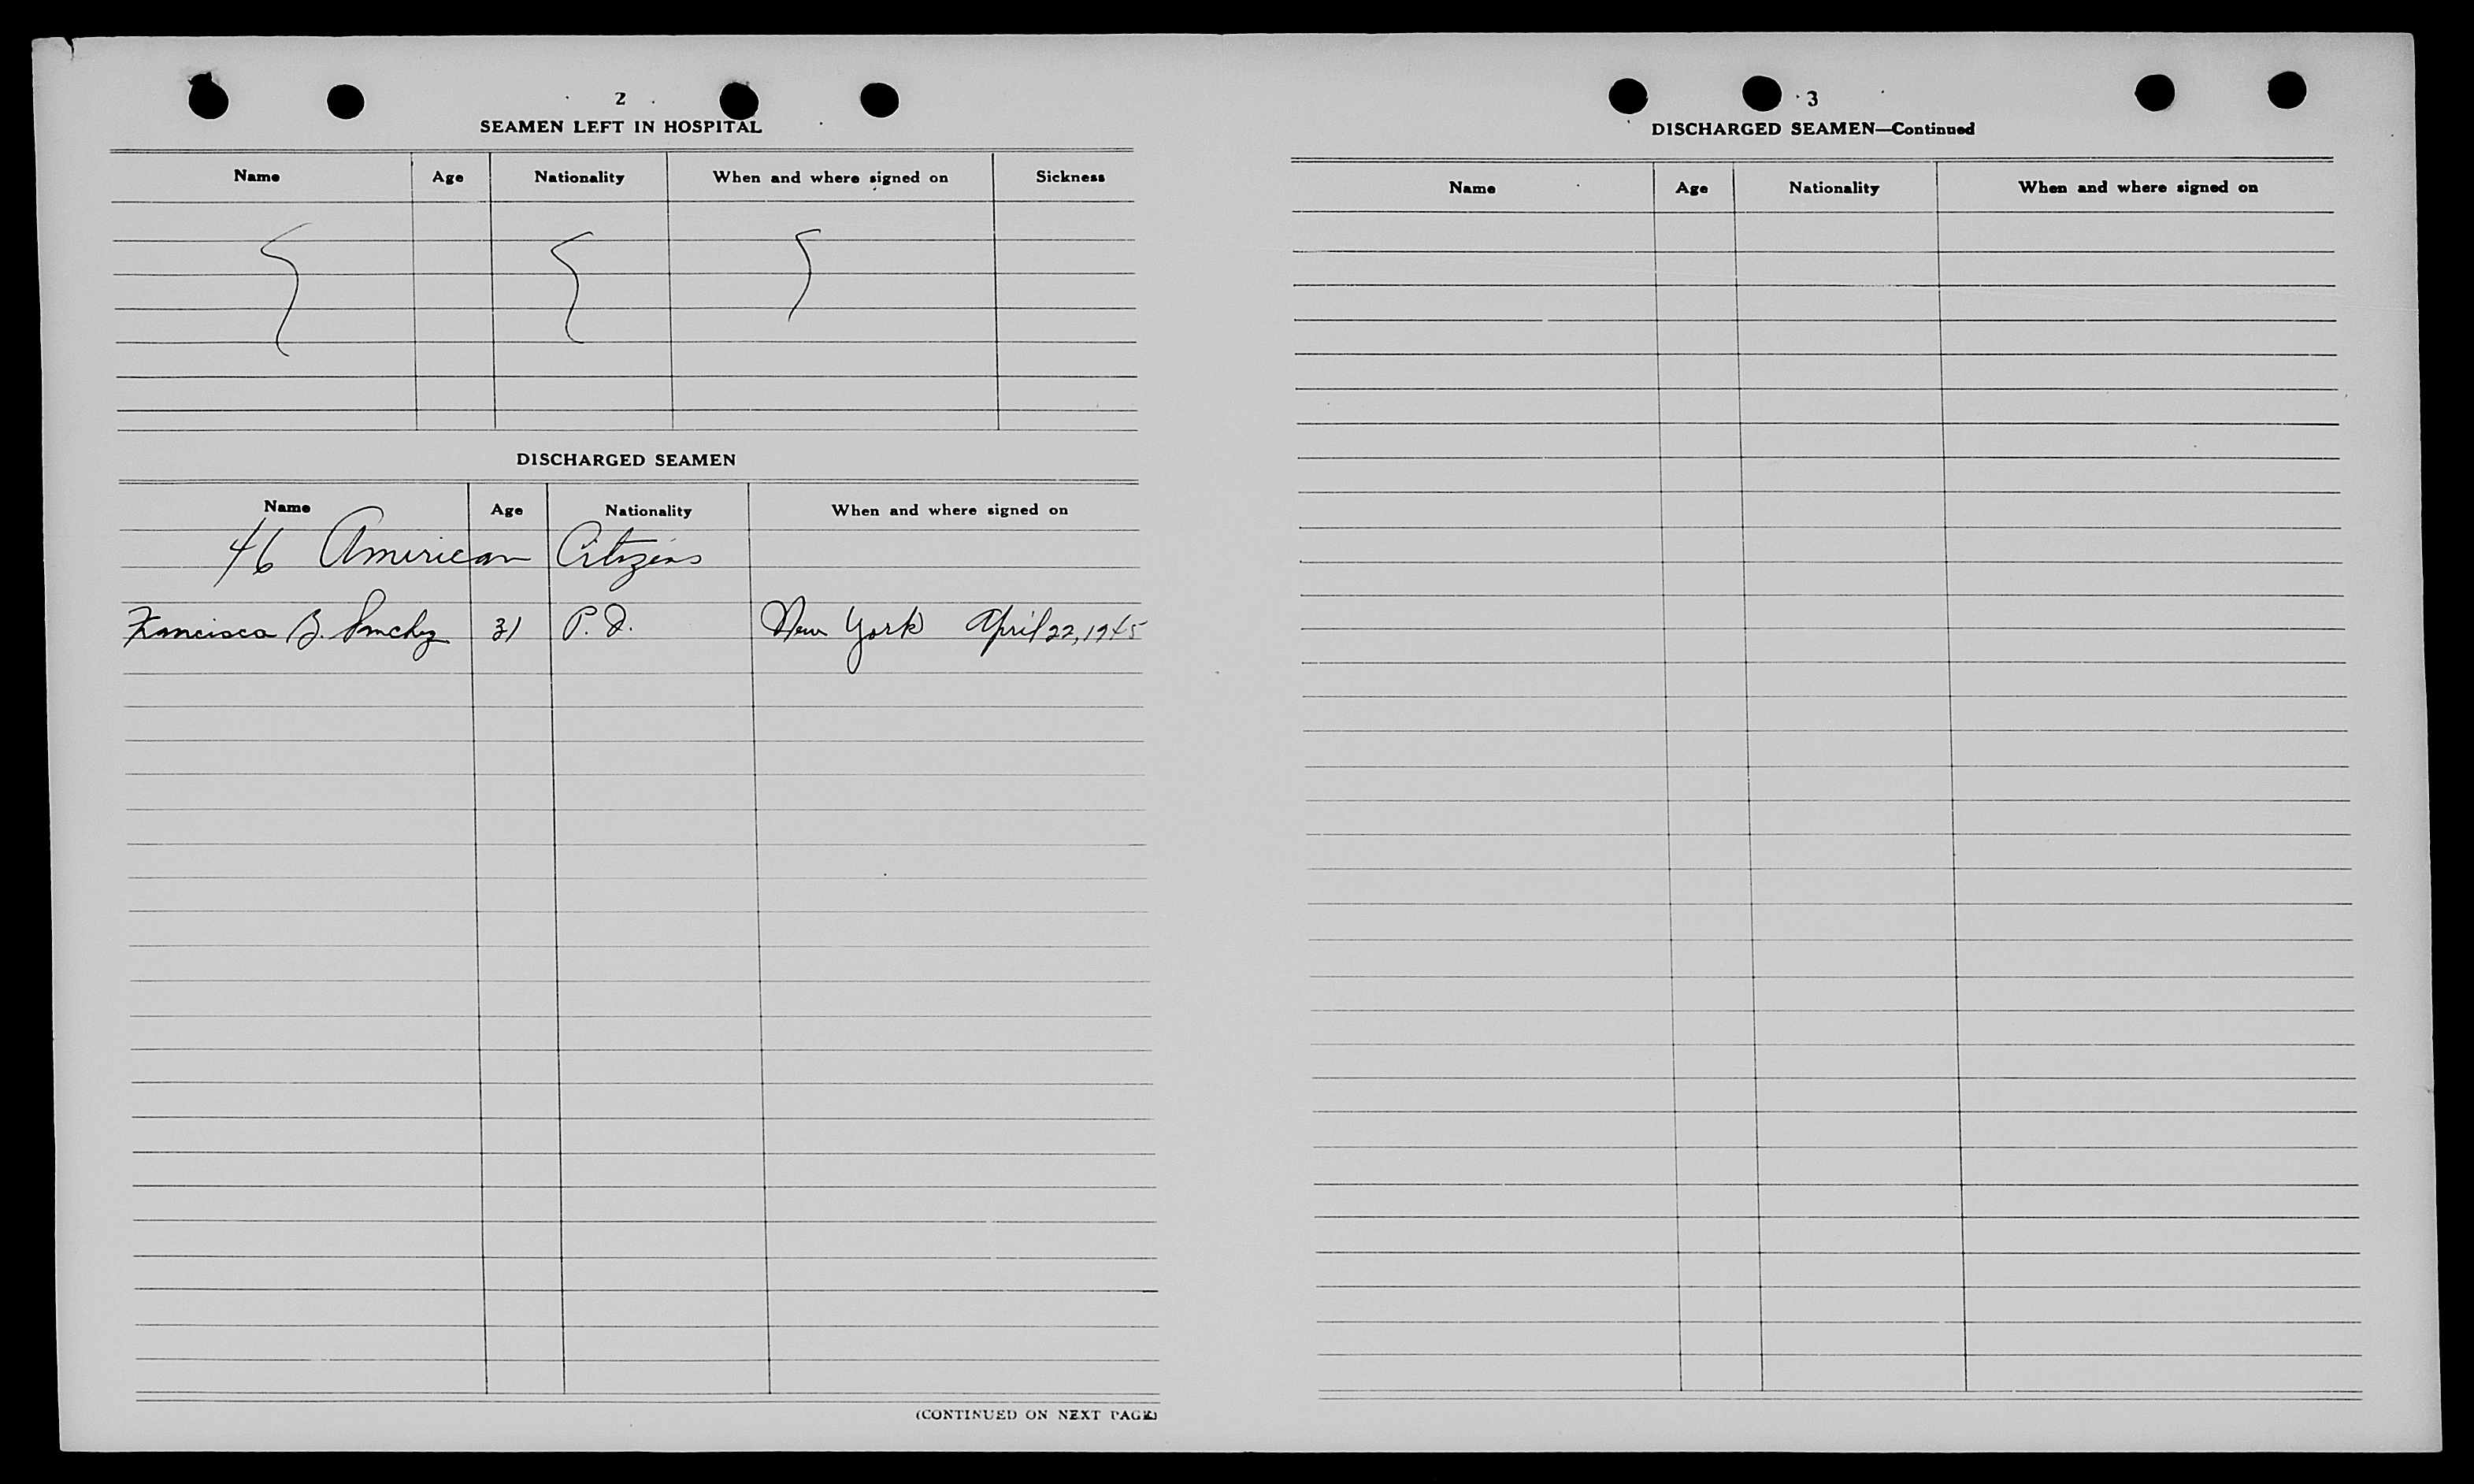 2
SEAMEN LEFT IN HOSPITAL
Name Age Nationality When and where signed on Sickness
DISCHARGED SEAMEN
Name Age Nationality When and where signed on
46 American Citizens
Francisco B. Sanchez 31 P. I. New York April 22, 1945
(CONTINUED ON NEXT PAGE)
3
DISCHARGED SEAMEN—Continued
Name Age Nationality When and where signed on